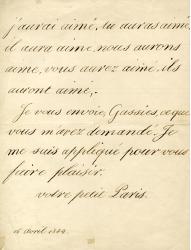 j'aurai aimé, tu auras aimé,
il aura aimé, nous aurons
aimé, vous aurez aimé, ils
auront aimé,.
Je vous envoie, Gassies, ce que
vous m'avez demandé. Je
me suis appliqué pour vous
faire plaisir.
votre petit Paris.
avril 1844